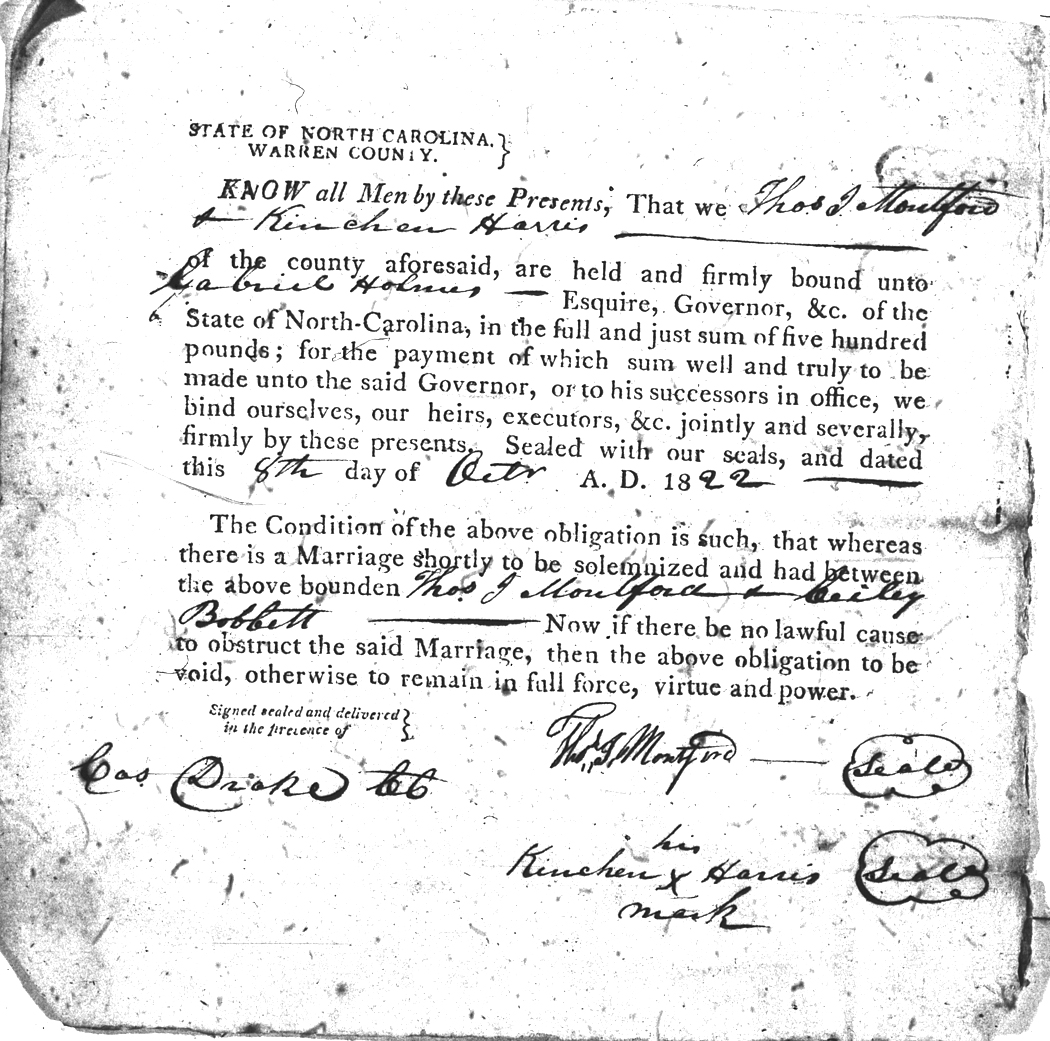 STATE OF NORTH CAROLINA. }
WARREN COUNTY.
KNOW all Men by these Presents, That we Thos J Montford
& Kinchen Harris
of the county aforesaid, are held and firmly bound unto
Gabriel Holmes — Esquire, Governor, &c. of the
State of North-Carolina, in the full and just sum of five hundred
pounds; for the payment of which sum well and truly to be
made unto the said Governor, or to his successors in office, we
bind ourselves, our heirs, executors, &c. jointly and severally,
firmly by these presents. Sealed with our seals, and dated
this 8th day of Octr A. D. 1822
The Condition of the above obligation is such, that whereas
there is a Marriage shortly to be solemnized and had between
the above bounden Thos J Moulford & Ceiley
Bobbett — Now if there be no lawful cause
to obstruct the said Marriage, then the above obligation to be
void, otherwise to remain in full force, virtue and power.
Signed sealed and delivered }
in the presence of
Thos J. Montford — Seal
Cas Drake
his
Kinchen X Harris Seal
mark